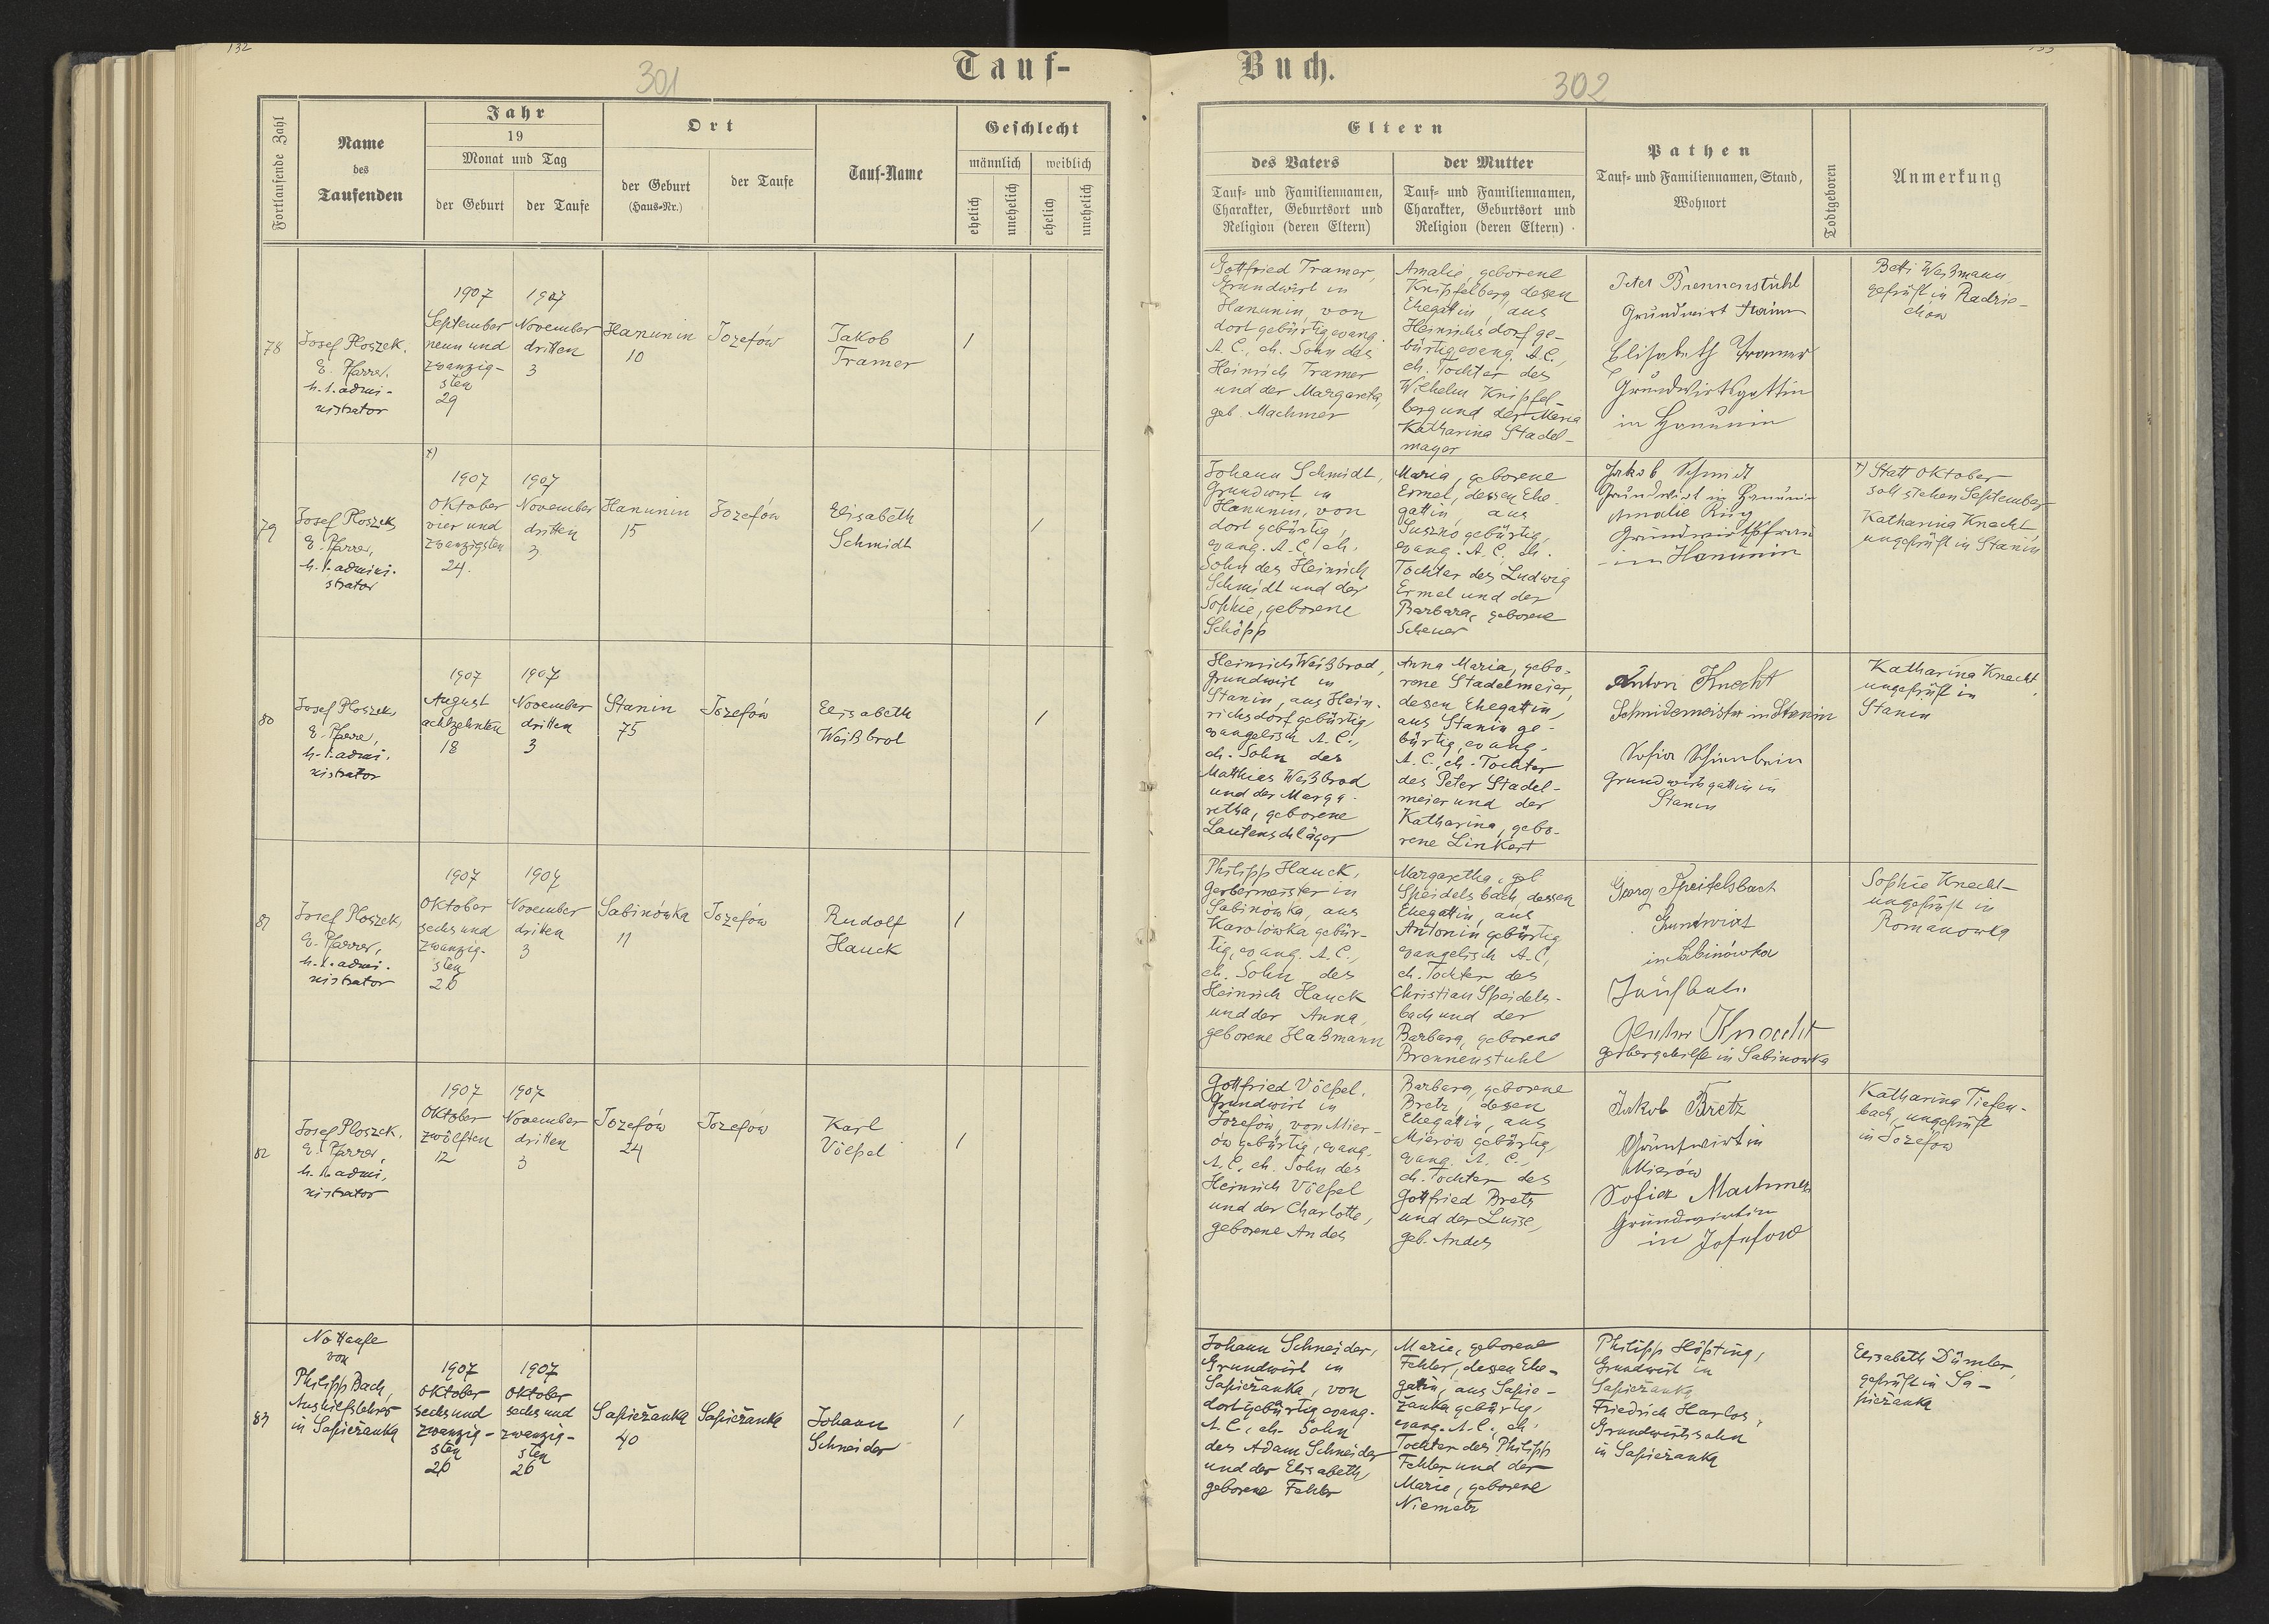 132
301
Tauf-
Fortlaufende Zahl
Name
des
Taufenden
Jahr
19
Monat und Tag
der Geburt
der Taufe
Ort
der Geburt
(Haus-Nr.)
der Taufe
Tauf-Name
Geschlecht
männlich
weiblich
ehelich
unehelich
ehelich
unehelich
78
Josef Ploszek,
E. Pfarrer,
h. t. admi-
nistrator
1907
September
neun und
zwanzig-
sten
29
1907
November
dritten
3
Hanunin
10
Józefów
Jakob
Tramer
1
79
Josef Ploszek,
E. Pfarrer,
h. t. admini-
strator
x)
1907
Oktober
vier und
zwanzigsten
24.
1907
November
dritten
3
Hanunin
15
Józefów
Elisabeth
Schmidt
1
80
Josef Ploszek,
E. Pfarre,
h. t. admi-
nistrator
1907
August
achtzehnten
18
1907
November
dritten
3
Stanin
75
Józefów
Elisabeth
Weißbrot
1
81
Josef Ploszek,
E. Pfarrer,
h. t. admi-
nistrator
1907
Oktober
sechs und
zwanzig-
sten
26
1907
November
dritten
3
Sabinówka
11
Józefów
Rudolf
Hauck
1
82
Josef Ploszek,
E. Pfarrer,
h. t. admi-
nistrator
1907
Oktober
zwölften
12
1907
November
dritten
3
Józefów
24
Józefów
Karl
Völpel
1
83
Nottaufe
von
Philipp Bach,
Aushilfslehrer
in Sapieżanka
1907
Oktober
sechs und
zwanzig-
sten
26
1907
Oktober,
sechs und
zwanzig-
sten
26
Sapieżanka
40
Sapieżanka
Johann
Schneider
1
Buch.
302
Eltern
des Vaters
Tauf- und Familiennamen,
Charakter, Geburtsort und
Religion (deren Eltern)
der Mutter
Tauf- und Familiennamen,
Charakter, Geburtsort und
Religion (deren Eltern)
Pathen
Tauf- und Familiennamen, Stand,
Wohnort
Todtgeboren
Anmerkung
Gottfried Tramer,
Grundwirt in
Hanunin, von
dort gebürtig evang.
A. C., eh. Sohn des
Heinrich Tramer
und der Margareta,
geb. Machmer
Amalie, geborene
Knipfelberg, dessen
Ehegattin, aus
Heinrichsdorf ge-
bürtig evang. A. C.,
eh. Tochter des
Wilhelm Knipfel-
berg und der Maria
Katharina Stadel-
mayer
Peter Brennenstuhl
Grundwirt
Elisabeth Tramer
Grundwirtsgattin
in Hanunin
Betti Weßmann
geprüft in Radzie-
chow
Johann Schmidt,
Grundwirt in
Hanunin, von
dort gebürtig,
evang. A. C., eh.
Sohn des Heinrich
Schmidt und der
Sophie, geborene
Schöpp
Maria, geborene
Ermel, dessen Ehe-
gattin, aus
Suszno gebürtig,
evang. A. C., eh.
Tochter des Ludwig
Ermel und der
Barbara, geborene
Scheuer
Jakob Schmidt
Grundwirt in Hanunin
Amalie
in Hanunin
x) Statt Oktober
soll stehen September
Katharina Knecht
ungeprüft in Stanin
Heinrich Weißbrod,
Grundwirt in
Stanin, aus Hein-
richsdorf gebürtig
evangelisch A. C.,
eh. Sohn des
Matthias Weißbrod
und der Marga-
retha, geborene
Lautenschläger
Anna Maria, gebo-
rene Stadelmeier,
dessen Ehegattin,
aus Stanin ge-
bürtig, evang.
A. C., eh. Tochter
des Peter Stadel-
meier und der
Katharina, gebo-
rene Linkert
Anton Knecht
Schmidemeister in Stanin
Sofia
Grundwirtsgattin in
Stanin
Katharina Knecht,
ungeprüft in
Stanin
Philipp Hauck,
Gerbermeister in
Sabinówka, aus
Karolówka gebür-
tig, evang. A. C.,
eh. Sohn des
Heinrich Hauck
und der Anna,
geborene Haßmann
Margaretha, geb.
Speidelsbach, dessen
Ehegattin, aus
Antonin gebürtig
evangelisch A. C.,
eh. Tochter des
Christian Speidels-
bach und der
Barbara, geborene
Brennenstuhl
Georg Speitelsbach
Grundwirt
in Sabinówka
Knecht
Gerbergehilfe in Sabinowka
Sophie Knecht
ungeprüft in
Romanowka
Gottfried Völpel,
Grundwirt in
Józefów, von Mier-
ów gebürtig, evang.
A. C., eh. Sohn des
Heinrich Völpel
und der Charlotte,
geborene Andes
Barbara, geborene
Bretz, dessen
Ehegattin, aus
Mierów gebürtig
evang. A. C.,
eh. Tochter des
Gottfried Bretz
und der Luise,
geb. Andes
Jakob Bretz
Grundwirt in
Mierów
Sofia Machmer
Grundwirtin
in Josefow
Katharina Tiefen-
bach, ungeprüft
in Józefów
Johann Schneider,
Grundwirt in
Sapieżanka, von
dort gebürtig evang.
A. C., eh. Sohn
des Adam Schneider
und der Elisabeth,
geborene Fehler
Marie, geborene
Fehler, dessen Ehe-
gattin, aus Sapie-
żanka gebürtig,
evang. A. C., eh.
Tochter des Philipp
Fehler und der
Marie, geborene
Niemetz
Philipp Höpting,
Grundwirt in
Sapieżanka
Friedrich Harlos,
Grundwirtssohn
in Sapieżanka
Elisabeth Dümler,
geprüft in Sa-
pieżanka